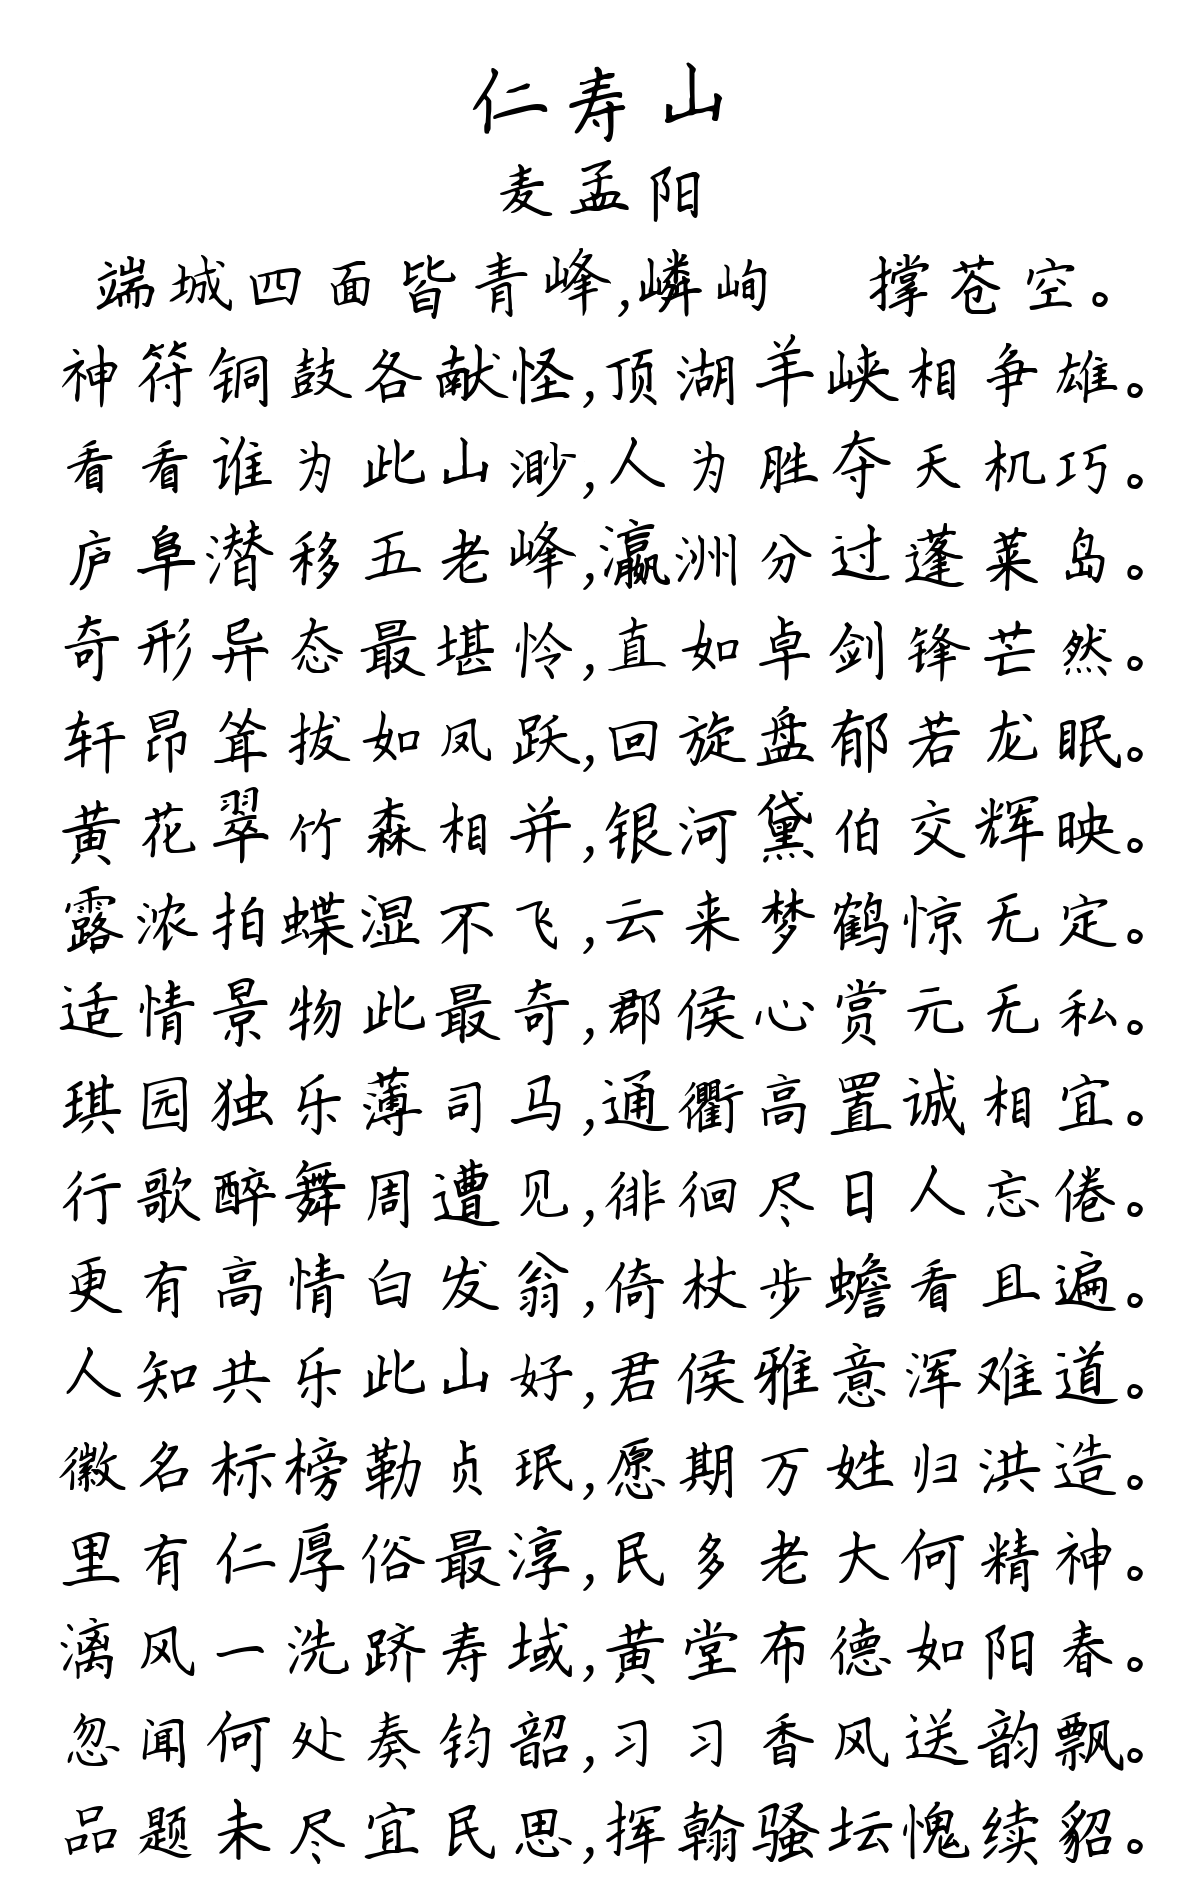 仁寿山
麦孟阳
端城四面皆青峰,嶙峋 撑苍空。
神符铜鼓各献怪,顶湖羊峡相争雄。
看看谁为此山渺,人为胜夺天机巧。
庐阜潜移五老峰,瀛洲分过蓬莱岛。
奇形异态最堪怜,直如卓剑锋芒然。
轩昂耸拔如凤跃,回旋盘郁若龙眠。
黄花翠竹森相并,银河黛伯交辉映。
露浓拍蝶湿不飞,云来梦鹤惊无定。
适情景物此最奇,郡侯心赏元无私。
琪园独乐薄司马,通衢高置诚相宜。
行歌醉舞周遭见,徘徊尽日人忘倦。
更有高情白发翁,倚杖步蟾看且遍。
人知共乐此山好,君侯雅意浑难道。
徽名标榜勒贞珉,愿期万姓归洪造。
里有仁厚俗最淳,民多老大何精神。
漓风一洗跻寿域,黄堂布德如阳春。
忽闻何处奏钧韶,习习香风送韵飘。
品题未尽宜民思,挥翰骚坛愧续貂。